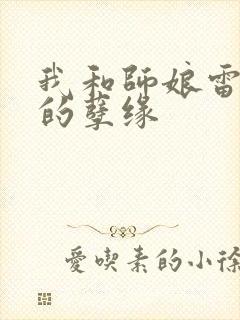 我和師娘雷
的孽缘
愛喫素的小徐